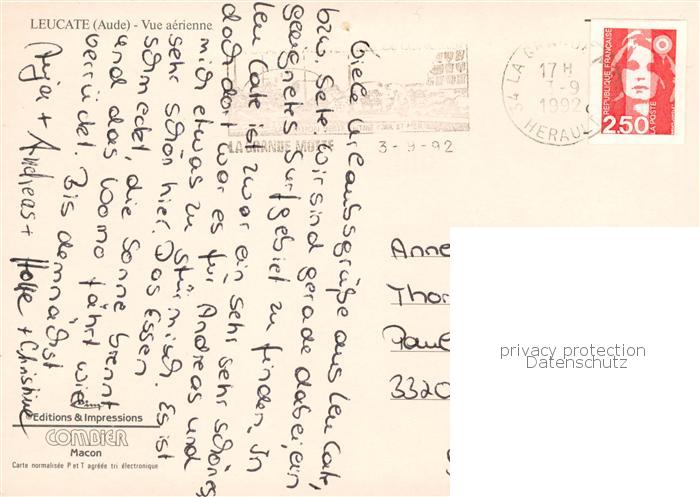 LEUCATE (Aude) - Vue aérienne
Viele Urlaubsgrüße aus Leucate,
bzw. Sete. Wir sind gerade dabei, ein
geeignetes Surfgebiet zu finden. In
Leucate ist zwar ein sehr sehr schönes
doch dort war es für Andreas und
mich etwas zu stürmisch. Es ist
sehr schön hier. Das Essen
schmeckt, die Sonne brennt
und das Womo fährt wie
verrückt. Bis demnächst
Anja + Andreas + + Christine
LA GRANDE MOTTE 3-9-92
34 LA GRANDE
17 H
3-9
1992
HERAULT
REPUBLIQUE FRANÇAISE
2,50
LA POSTE
Anne
Thor
Paul
3320
privacy protection
Datenschutz
©Editions & Impressions
COMBIER
Macon
Carte normalisée P et T agréée tri électronique